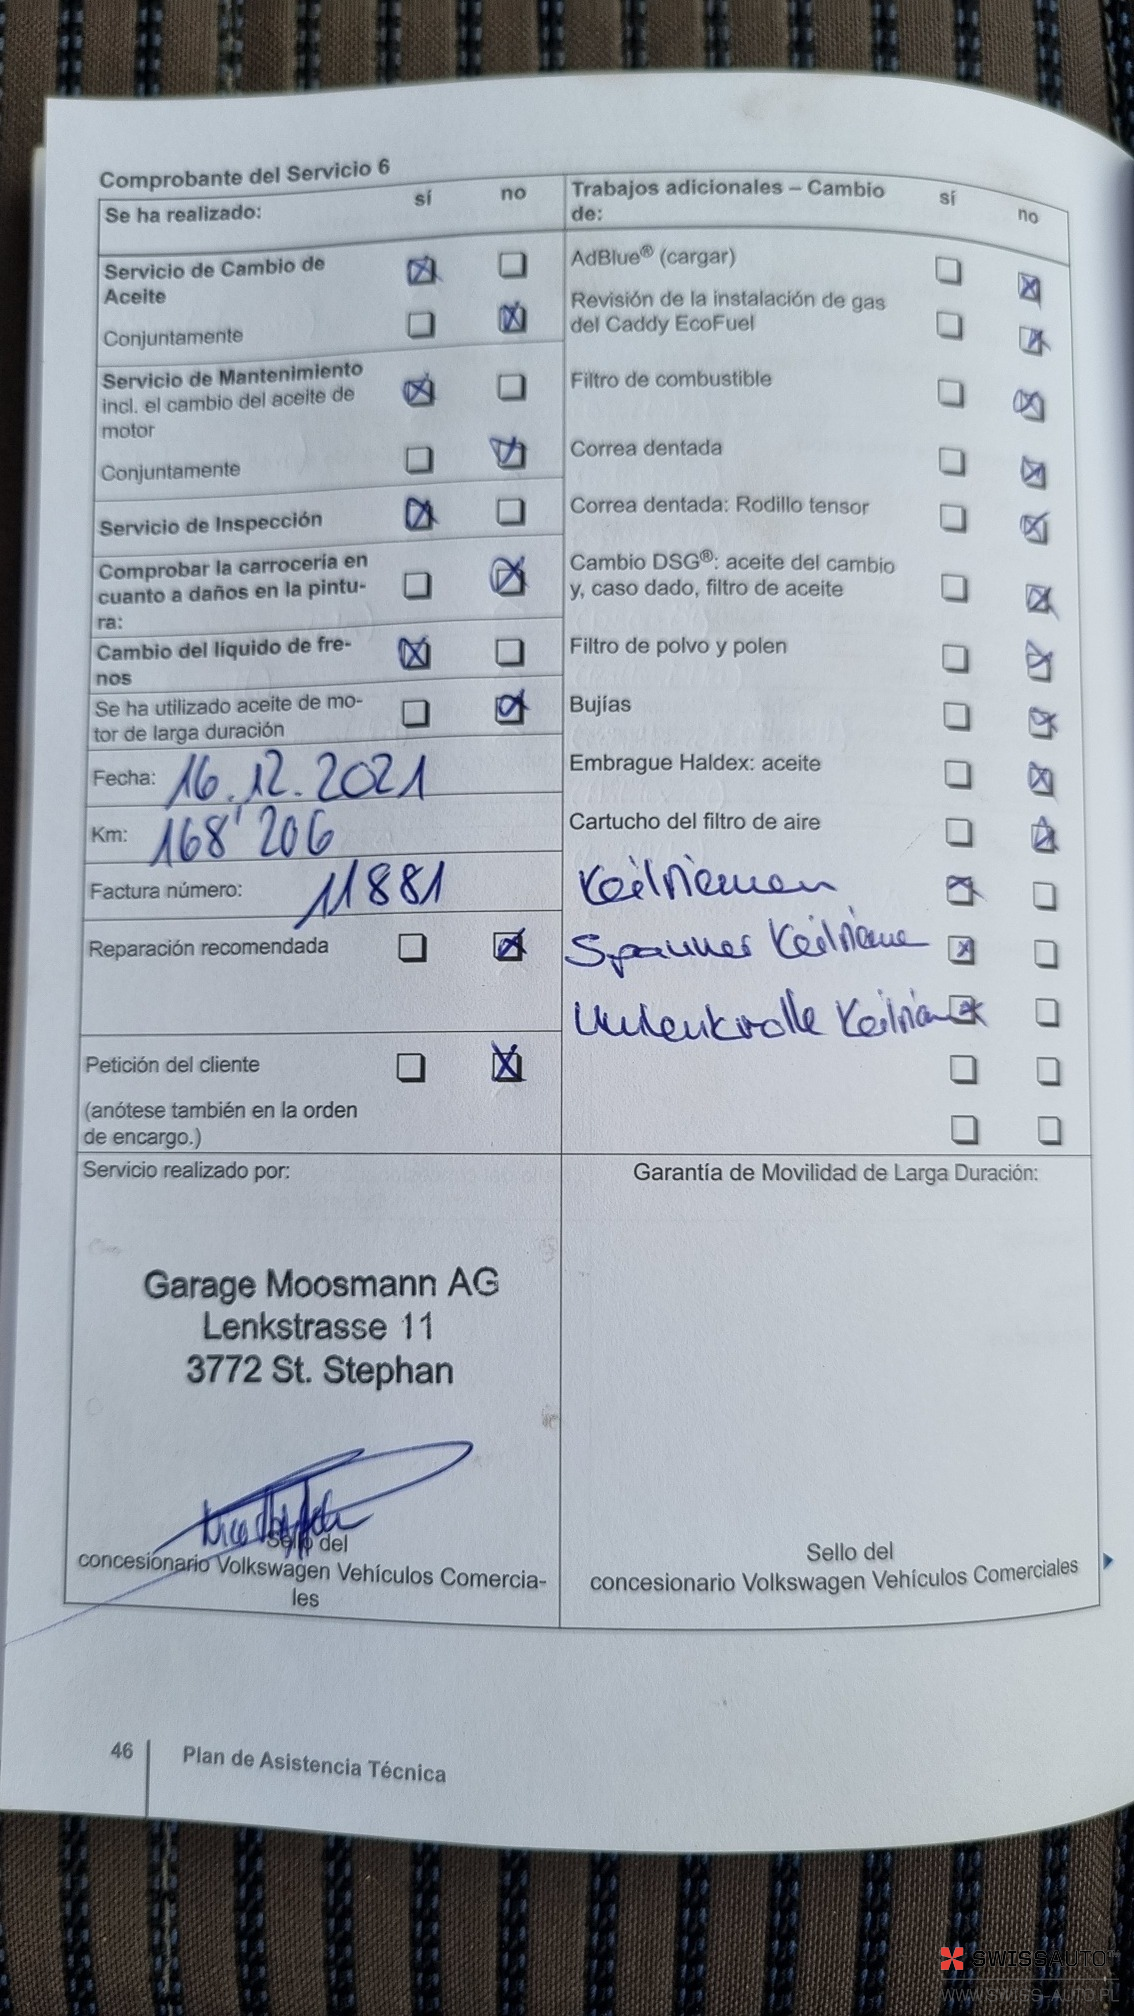 Comprobante del Servicio 6
Se ha realizado:
sí
no
Servicio de Cambio de
Aceite
Conjuntamente
Servicio de Mantenimiento
incl. el cambio del aceite de
motor
Conjuntamente
Servicio de Inspección
Comprobar la carrocería en
cuanto a daños en la pintu-
ra:
Cambio del líquido de fre-
nos
Se ha utilizado aceite de mo-
tor de larga duración
Fecha: 16.12.2021
Km: 168'206
Factura número: 11881
Reparación recomendada
Petición del cliente
(anótese también en la orden
de encargo.)
Trabajos adicionales – Cambio
de:
sí
no
AdBlue® (cargar)
Revisión de la instalación de gas
del Caddy EcoFuel
Filtro de combustible
Correa dentada
Correa dentada: Rodillo tensor
Cambio DSG®: aceite del cambio
y, caso dado, filtro de aceite
Filtro de polvo y polen
Bujías
Embrague Haldex: aceite
Cartucho del filtro de aire
Keilriemen
Spanner Keilrieme
Umlenkrolle
Servicio realizado por:
Garage Moosmann AG
Lenkstrasse 11
3772 St. Stephan
Sello del
concesionario Volkswagen Vehículos Comercia-
les
Garantía de Movilidad de Larga Duración:
Sello del
concesionario Volkswagen Vehículos Comerciales
46
Plan de Asistencia Técnica
SWISSAUTO™
WWW.SWISS-AUTO.PL